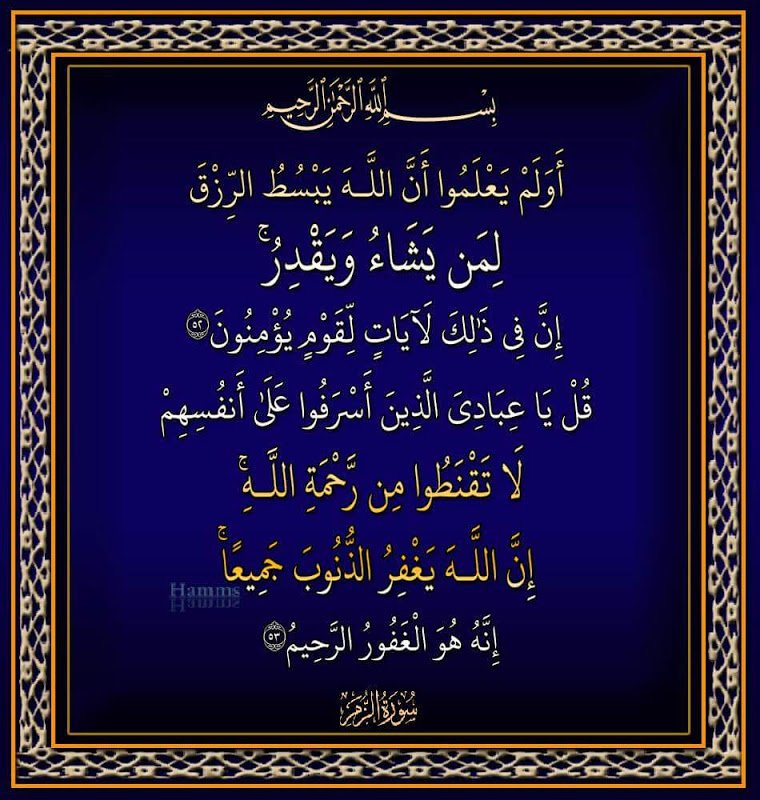 بِسْمِ ٱللَّهِ ٱلرَّحْمَٰنِ ٱلرَّحِيمِ
أَوَلَمْ يَعْلَمُوا أَنَّ اللَّـهَ يَبْسُطُ الرِّزْقَ
لِمَن يَشَاءُ وَيَقْدِرُ ۚ
إِنَّ فِي ذَٰلِكَ لَآيَاتٍ لِّقَوْمٍ يُؤْمِنُونَ ﴿٥٢﴾
قُلْ يَا عِبَادِيَ الَّذِينَ أَسْرَفُوا عَلَىٰ أَنفُسِهِمْ
لَا تَقْنَطُوا مِن رَّحْمَةِ اللَّـهِ ۚ
إِنَّ اللَّـهَ يَغْفِرُ الذُّنُوبَ جَمِيعًا ۚ
Hamms
إِنَّهُ هُوَ الْغَفُورُ الرَّحِيمُ ﴿٥٣﴾
سُورَةُ الزُّمَرِ